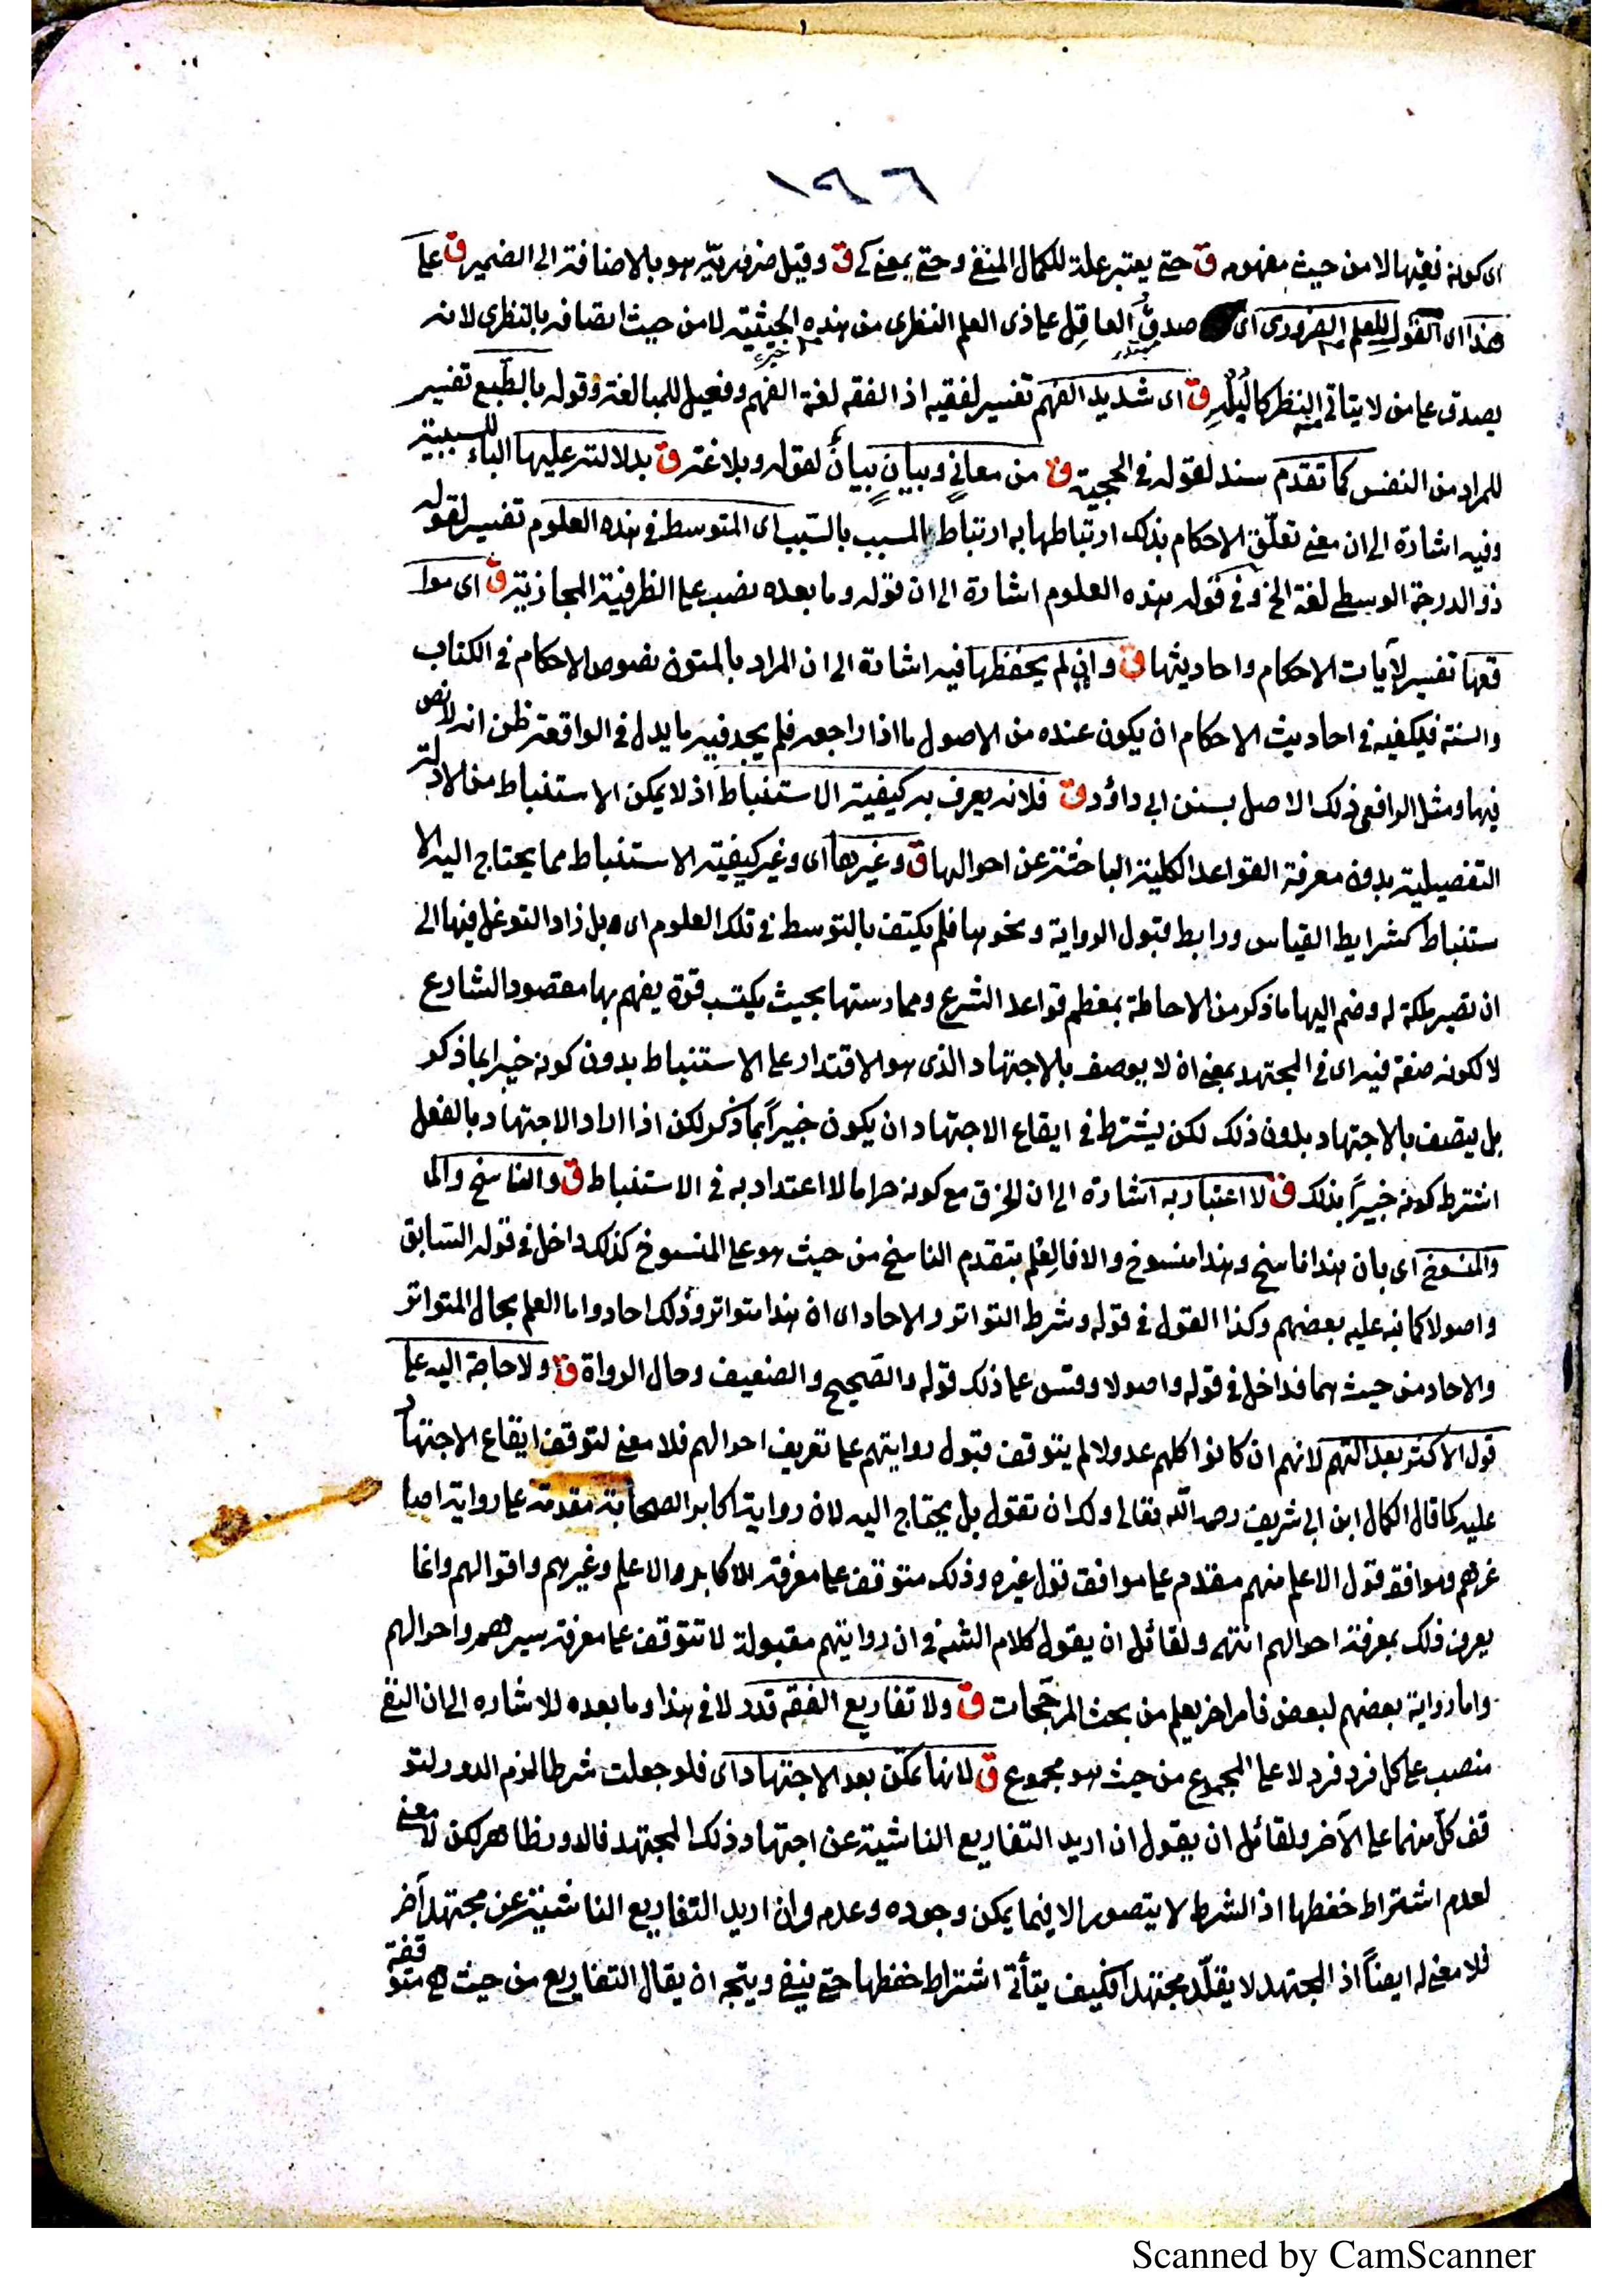 ١٩٦
اى كونه فقيها لا من حيث مفهومه ق حتى يعتبر علة للكمال المنفى وحتى بمعنى كى ق وقيل ضروريّه هو بالاضافة الى الضمير ق على
هذا اى القول للعلم الضرورى اى صدق العاقل على ذى العلم النظرى من هذه الحيثية لا من حيث اتصافه بالنظرى لانه
يصدق على من لا يتاتى منه النظر كالبُلْهِ ق اى شديد الفهم تفسير لفقيه اذ الفقه لغة الفهم وفعيل للمبالغة وقوله بالطبع تفسير
للمراد من النفس كما تقدم سند لقوله فى الحجية ق من معانٍ وبيانٍ بيانٌ لقوله وبلاغة ق بدلالته عليها الباء للسببية
وفيه اشارة الى ان معنى تعلّق الاحكام بذلك ارتباطها به ارتباط المسبب بالسّبب اى المتوسط فى هذه العلوم تفسير لقوله
ذو الدرجة الوسطى لغة الخ وفى قوله هذه العلوم اشارة الى ان قوله وما بعده نصب على الظرفية المجازية ق اى موا
قعها تفسير لآيات الاحكام واحاديثها ق وان لم يحفظها فيه اشارة الى ان المراد بالمتون نصوص الاحكام فى الكتاب
والسنة فيكفيه فى احاديث الاحكام ان يكون عنده من الاصول ما اذا راجعه فلم يجد فيه ما يدل فى الواقعة ظن انه لا نص
فيها ومثل الرافعى ذلك الاصل بسنن ابى داؤد ق فلانه يعرف به كيفية الاستنباط اذ لا يمكن الاستنباط من الادلة
التفصيلية بدون معرفة القواعد الكلية الباحثة عن احوالها ق وغيرها اى وغير كيفية الاستنباط مما يحتاج اليه الا
ستنباط كشرايط القياس ورابط قبول الرواية ونحوها فلم يكتف بالتوسط فى تلك العلوم اى بل زاد التوغل فيها الى
ان تصير ملكة له وضم اليها ما ذكر من الاحاطة بمعظم قواعد الشرع وممارستها بحيث يكتسب قوة يفهم بها مقصود الشارع
لا لكونه صفة فيه اى فى المجتهد بمعنى انه لا يوصف بالاجتهاد الذى هو الاقتدار على الاستنباط بدون كونه خبيرا بما ذكر
بل يتصف بالاجتهاد بدون ذلك لكن يشترط فى ايقاع الاجتهاد ان يكون خبيراً بما ذكر لكن اذا اراد الاجتهاد بالفعل
اشترط كونه خبيراً بذلك ق لا اعتبار به اشارة الى ان الخرق مع كونه حراما لا اعتداد به فى الاستنباط ق والناسخ والم
والمنسوخ اى بان هذا ناسخ وهذا منسوخ والا فالعلم بتقدم الناسخ من حيث هو على المنسوخ كذلك داخل فى قوله السّابق
واصولا كما نبه عليه بعضهم وكذا القول فى قوله وشرط التواتر والاحاد اى ان هذا متواتر وذلك احاد واما العلم بحال المتواتر
والاحاد من حيث هما فداخل فى قوله واصولا وقس على ذلك قوله والصّحيح والضعيف وحال الرواة ق ولا حاجة اليه على
قول الاكثر بعدالتهم لانهم ان كانوا كلهم عدولا لم يتوقف قبول روايتهم على تعريف احوالهم فلا معنى لتوقف ايقاع الاجتهاد
عليه كما قال الكمال ابن ابى شريف رحمه اللّه تعالى ولك ان تقول بل يحتاج اليه لان رواية اكابر الصحابة مقدمة على رواية اصا
غرهم وموافقة قول الاعلم منهم مقدم على موافق قول غيره وذلك متوقف على معرفة الاكابر والاعلم وغيرهم واقوالهم وانما
يعرف ذلك بمعرفة احوالهم انتهى ولقائل ان يقول كلام الشه فى ان روايتهم مقبولة لا تتوقف على معرفة سيرهم واحوالهم
واما رواية بعضهم لبعض فامر اخر يعلم من بحث المرجّحات ق ولا تفاريع الفقه قدر لا فى هذا وما بعده للاشاره الى ان النفى
منصب على كل فرد فرد لا على المجموع من حيث هو مجموع ق لانها تمكن بعد الاجتهاد اى فلو جعلت شرطا لزم الدور لتو
قف كلّ منهما على الآخر ولقائل ان يقول ان اريد التفاريع الناشية عن اجتهاد ذلك المجتهد فالدور ظاهر لكن لا معنى
لعدم اشتراط حفظها اذ الشرط لا يتصور الا فيما يمكن وجوده وعدمه وان اريد التفاريع الناشئة عن مجتهد آخر
فلا معنى له ايضاً اذ المجتهد لا يقلّد مجتهداً فكيف يتأتّى اشتراط حفظها حتى ينفى ويتجه ان يقال التفاريع من حيث هى متوقفة
Scanned by CamScanner